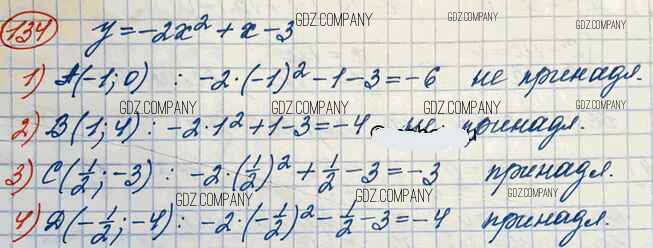 134 y = -2x² + x - 3 GDZ.COMPANY GDZ.COMPANY
1) A(-1; 0) : -2·(-1)² - 1 - 3 = -6 не принадл.
GDZ.COMPANY GDZ.COMPANY GDZ.COMPANY GDZ.COMPANY
2) B(1; 4) : -2·1² + 1 - 3 = -4 не принадл.
3) C(1/2; -3) : -2·(1/2)² + 1/2 - 3 = -3 принадл.
GDZ.COMPANY GDZ.COMPANY GDZ.COMPANY
4) D(-1/2; -4) : -2·(-1/2)² - 1/2 - 3 = -4 принадл.
GDZ.COMPANY GDZ.COMPANY